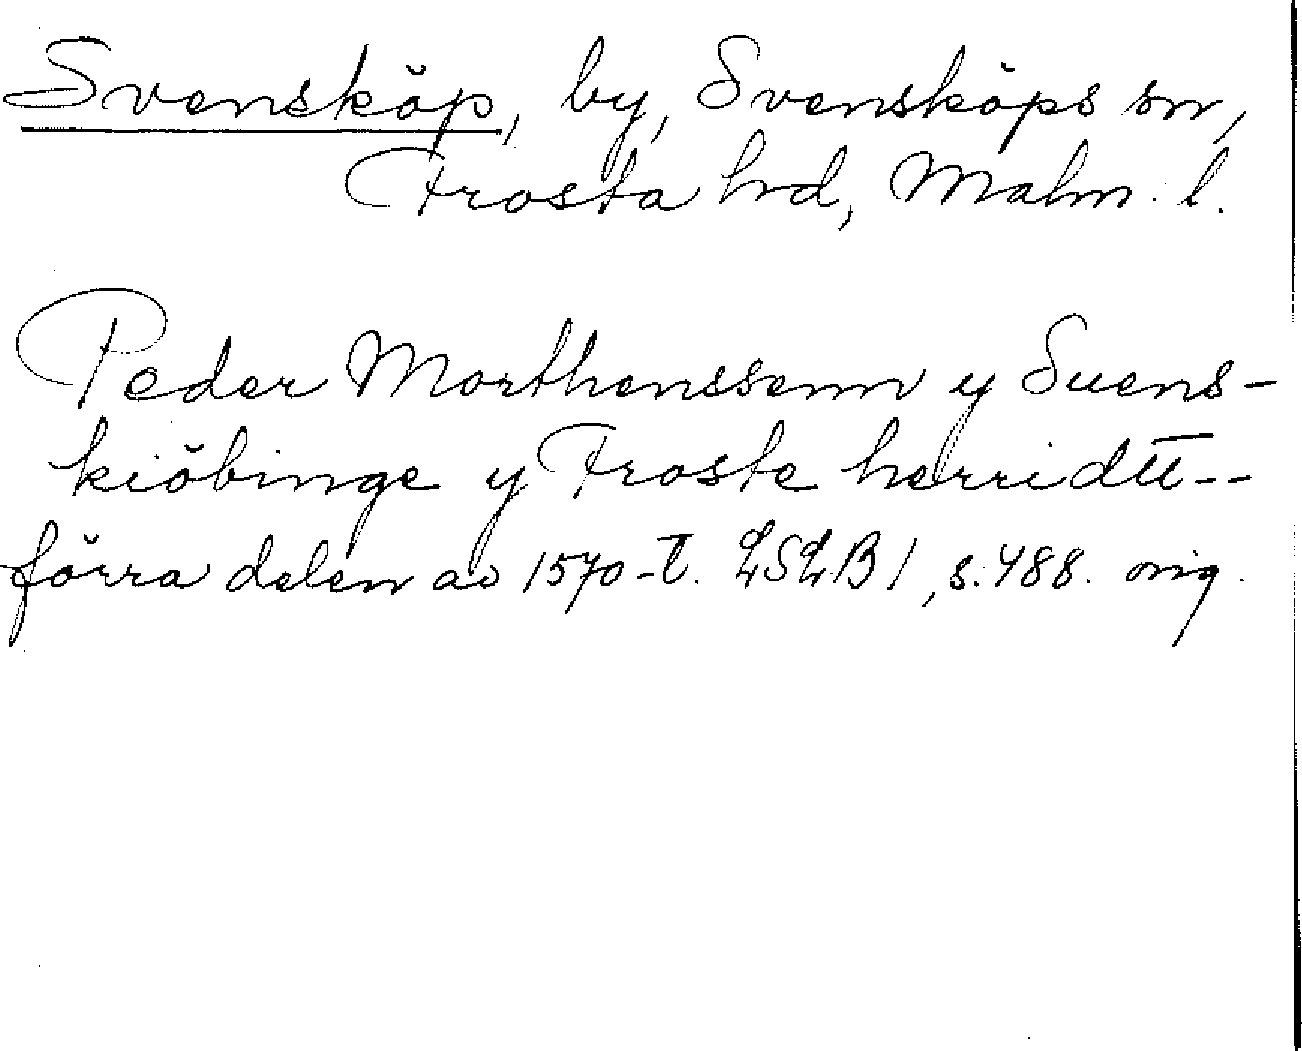 Svensköp, by, Svensköps sn,
Frosta hd, Malm. l.
Peder Morthenssenn y Suens-
kiöbinge y Froste herridtt--
förra delen av 1570-t. LSLB I, s. 488. orig.